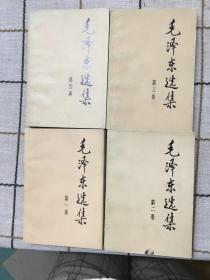 毛泽东选集
第四卷
毛泽东选集
第三卷
毛泽东选集
第一卷
毛泽东选集
第二卷